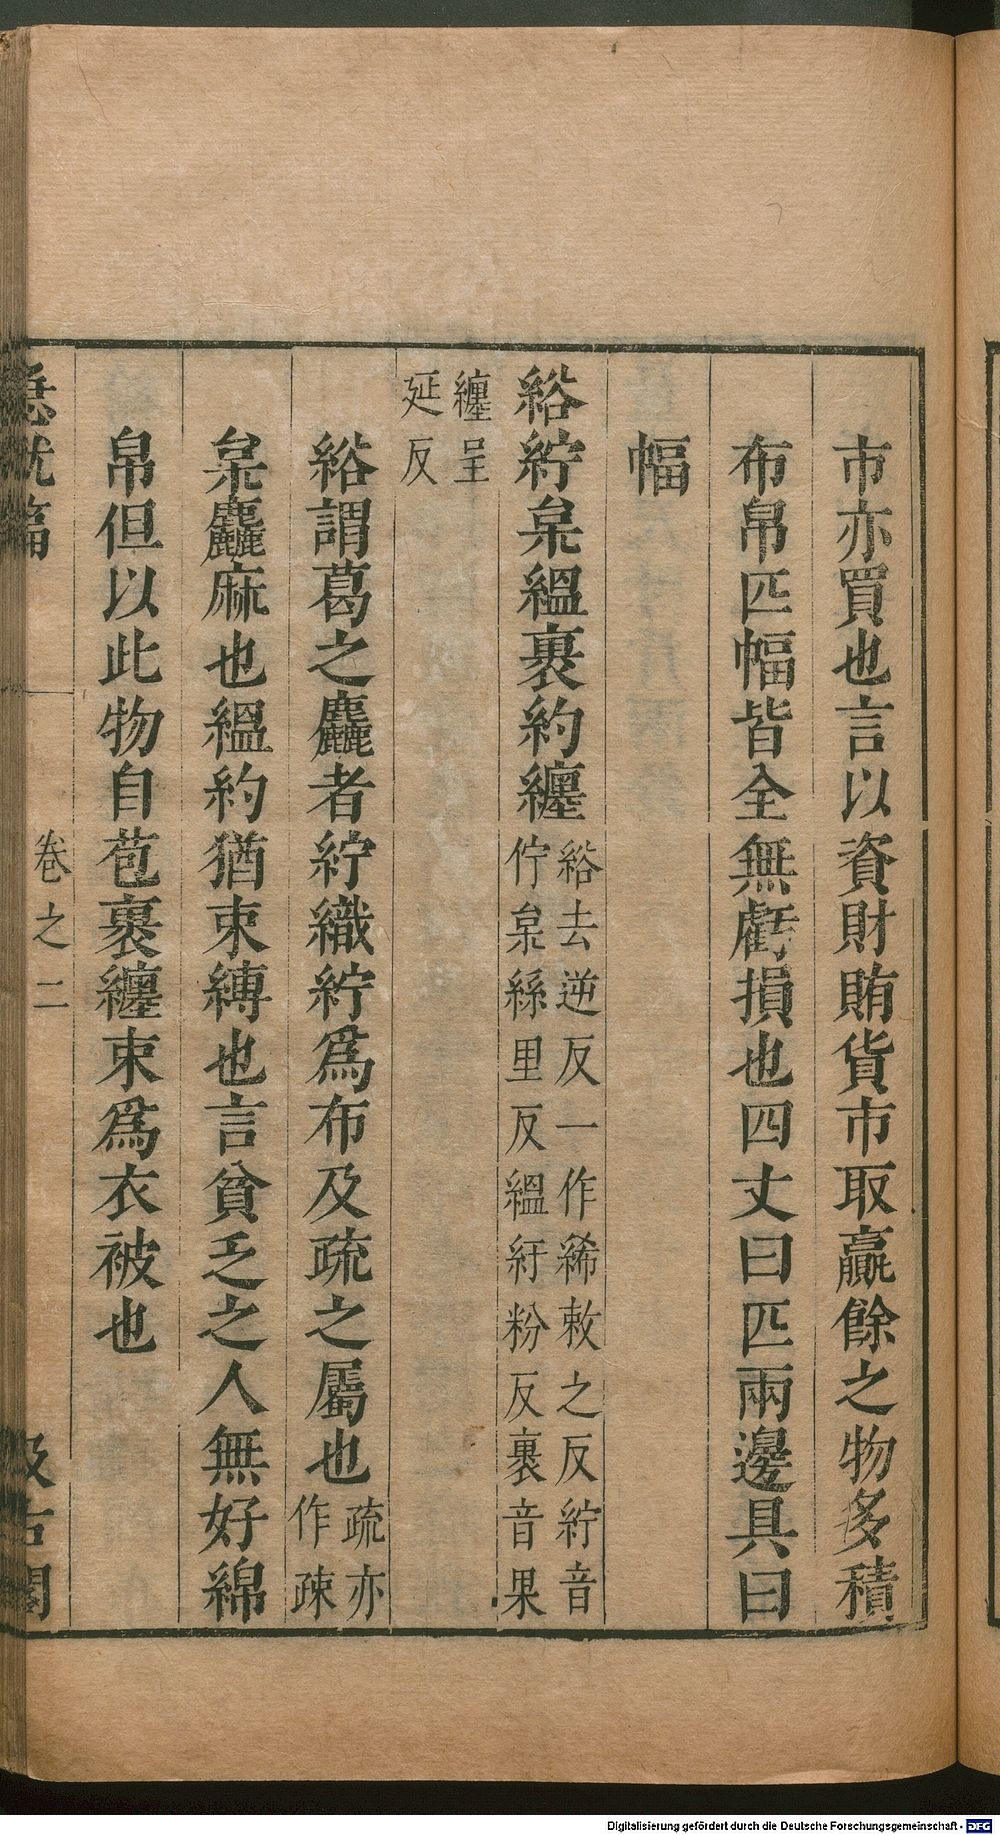 市亦買也言以資財賄貨市取贏餘之物多積
布帛匹幅皆全無虧損也四丈曰匹兩邊具曰
幅
綌紵枲縕裹約纏綌去逆反一作絺敕之反紵音
佇枲絲里反縕紆粉反裹音果
纏呈
延反
綌謂葛之麤者紵織紵爲布及疏之屬也疏亦
作疎
枲麤麻也縕約猶束縛也言貧乏之人無好綿
帛但以此物自苞裹纏束爲衣被也
急就篇
卷之二
汲古閣
Digitalisierung gefördert durch die Deutsche Forschungsgemeinschaft - DFG